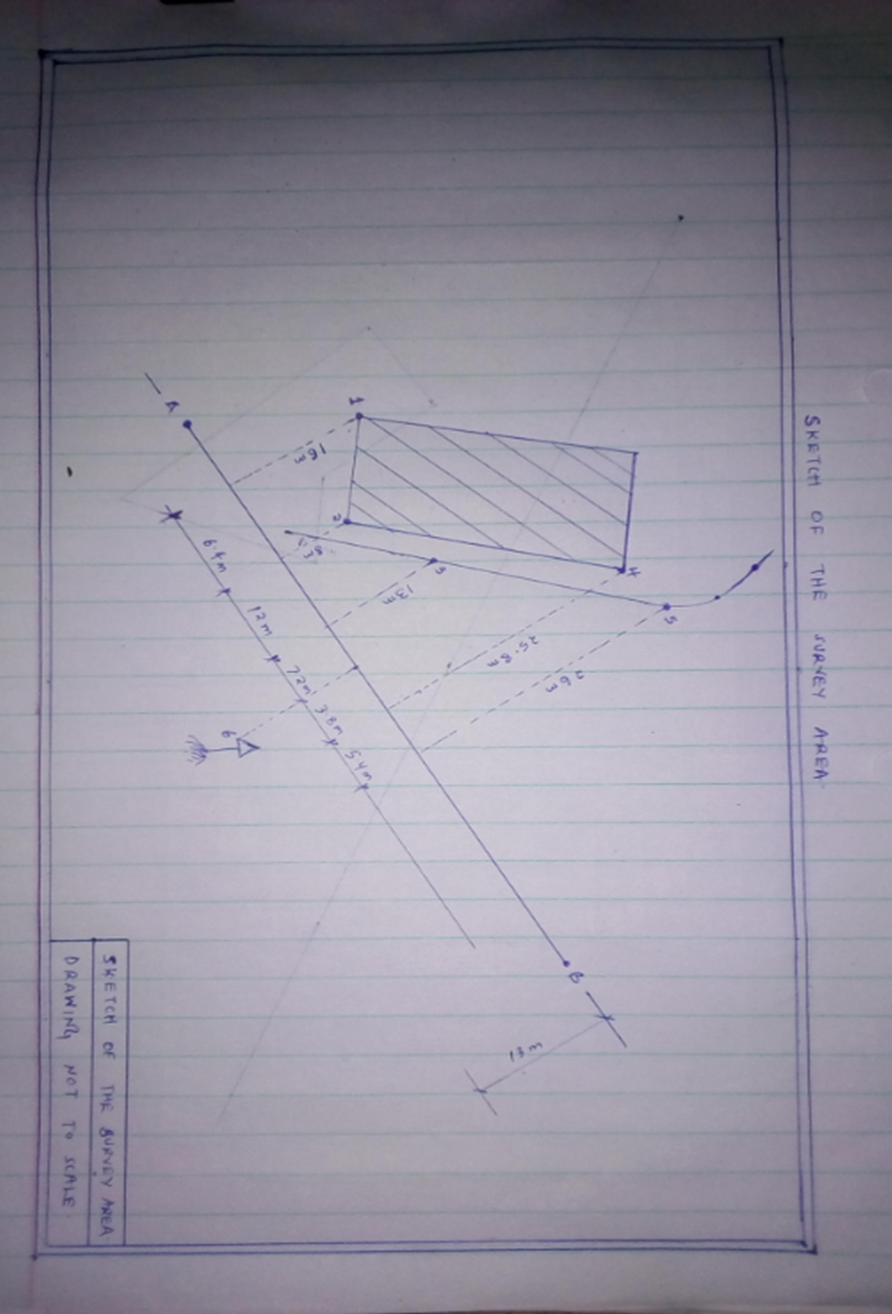 SKETCH OF THE SURVEY AREA
A
1
16m
2
3
13m
4
25.8m
5
26m
6.4m
12m
7.2m
3.8m
5.4m
6
B
13m
SKETCH OF THE SURVEY AREA
DRAWING NOT TO SCALE.